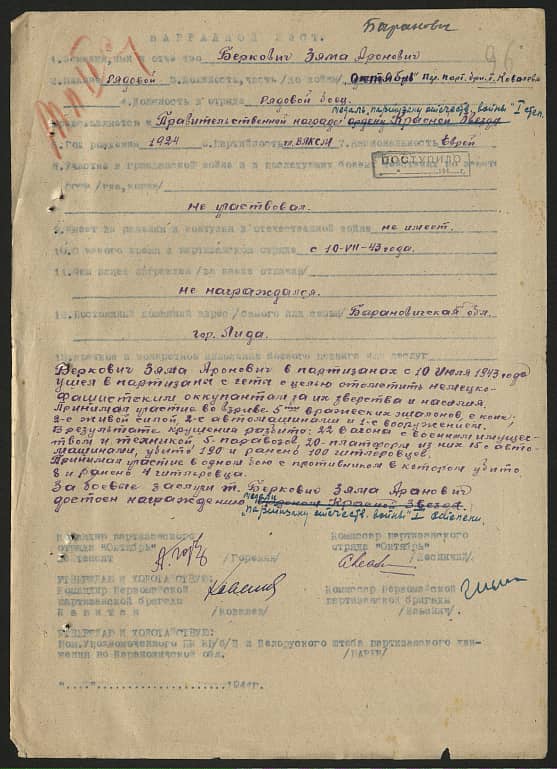 Баранович
96
НАГРАДНОЙ ЛИСТ.
1. Фамилия, имя и отчество Беркович Зяма Аронович
2. Звание рядовой 3. Должность, часть "Октябрь" Пер. парт. бриг.
4. Должность в отряде рядовой боец
медаль "партизану отечеств. войны" I степ.
Представляется к Правительственной награде ордену Красной Звезда
5. Год рождения 1924 6. Партийность чл. ВЛКСМ 7. Национальность Еврей
ПОСТУПИЛО
8. Участие в гражданской войне и в последующих боевых
не участвовал.
9. Имеет ли ранения и контузии в отечественной войне не имеет.
10. С какого времени в партизанском отряде с 10-VII-43 года.
11. Чем ранее награжден /за какие отличия/
не награждался.
12. Постоянный домашний адрес Барановичская обл.
гор. Лида.
13. Краткое и конкретное изложение боевого подвига или заслуг
Беркович Зяма Аронович в партизанах с 10 Июля 1943 года
ушел в партизаны с гета с целью отомстить немецко-
фашистским оккупантам за их зверства и насилия.
Принимал участие во взрыве 5ти вражеских эшалонов, с коих
2-с живой силой, 2-с автомашинами и 1-с вооружением.
В результате крушений разбито: 22 вагона с военным имущес-
твом и техникой, 5-паравозов, 20-платформ из них 15 с авто-
машинами, убито 190 и ранено 100 гитлеровцев.
Принимал участие в одном бою с противником в котором убито
8 и ранено 4 гитлеровца.
За боевые заслуги т. Беркович Зяма Аранович
медали
достоен награждению орденом Красной Звезда.
"партизану отечеств. войны" I степени.
Командир партизанского
отряда "Октябрь"
Лейтенант /Горемин/
Комиссар партизанского
отряда "Октябрь"
УТВЕРЖДАЮ И ХОДАТАЙСТВУЮ:
Командир Первомайской
партизанской бригады
Капитан /Ковалев/
Комиссар Первомайской
партизанской бригады
УТВЕРЖДАЮ И ХОДАТАЙСТВУЮ:
Пом. Уполномоченного ЦК КП/б/Б и Белорусского штаба партизанского дви-
жения по Барановичской обл.
"____"____________194 г.